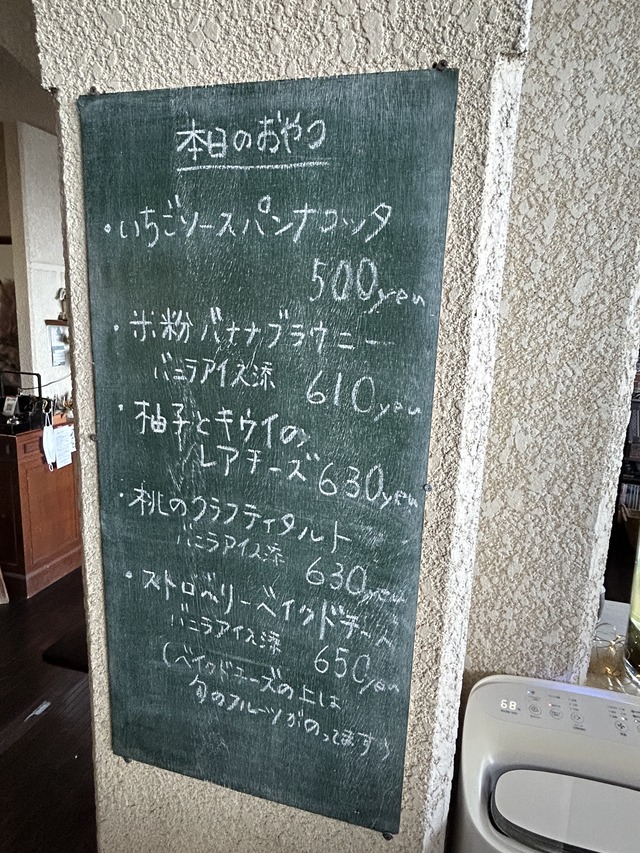 本日のおやつ
・いちごソースパンナコッタ
500yen
・米粉バナナブラウニー
バニラアイス添 610yen
・柚子とキウイの
レアチーズ 630yen
・桃のクラフティタルト
バニラアイス添 630yen
・ストロベリーベイクドチーズ
バニラアイス添 650yen
(ベイクドチーズの上は
旬のフルーツがのってます)
68